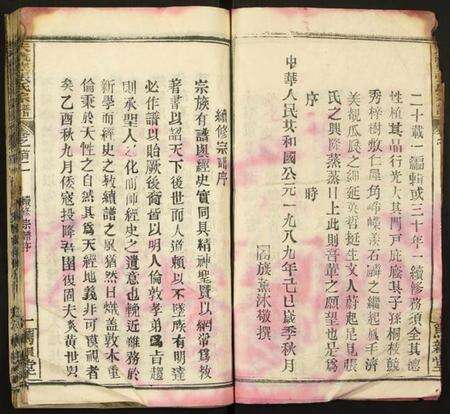 二十載一編輯或三十年一續修務須全其德
性植其品行光大其門戶庶幾其子孫桐枝競
秀梓樹敷仁犀角崢嶸羨石麟之繼起鳳毛濟
美覘瓜瓞之綿延英哲挺生文人蔚起是見張
氏之興降蒸蒸日上此則吾輩之願望也是為
序
時
中華人民共和國公元一九八九年己巳歲季秋月
闔族薰沐敬撰
續修宗譜序
宗族有譜與經史實同具精神聖賢以綱常為教
著書以詔天下後世而人道賴以不墜族有明達
必作譜以貽厥後裔皆以明人倫敦孝弟為旨趨
則承聖人之化而師經史之遺意也輓近雖務於
新學而經史之教續譜之風猶然日熾蓋敦木重
倫秉於天性之自然其為天經地義非可漠視者
矣乙酉秋九月倭寇投降吾國復固夫炎黃世界
卷首二
續修宗譜序